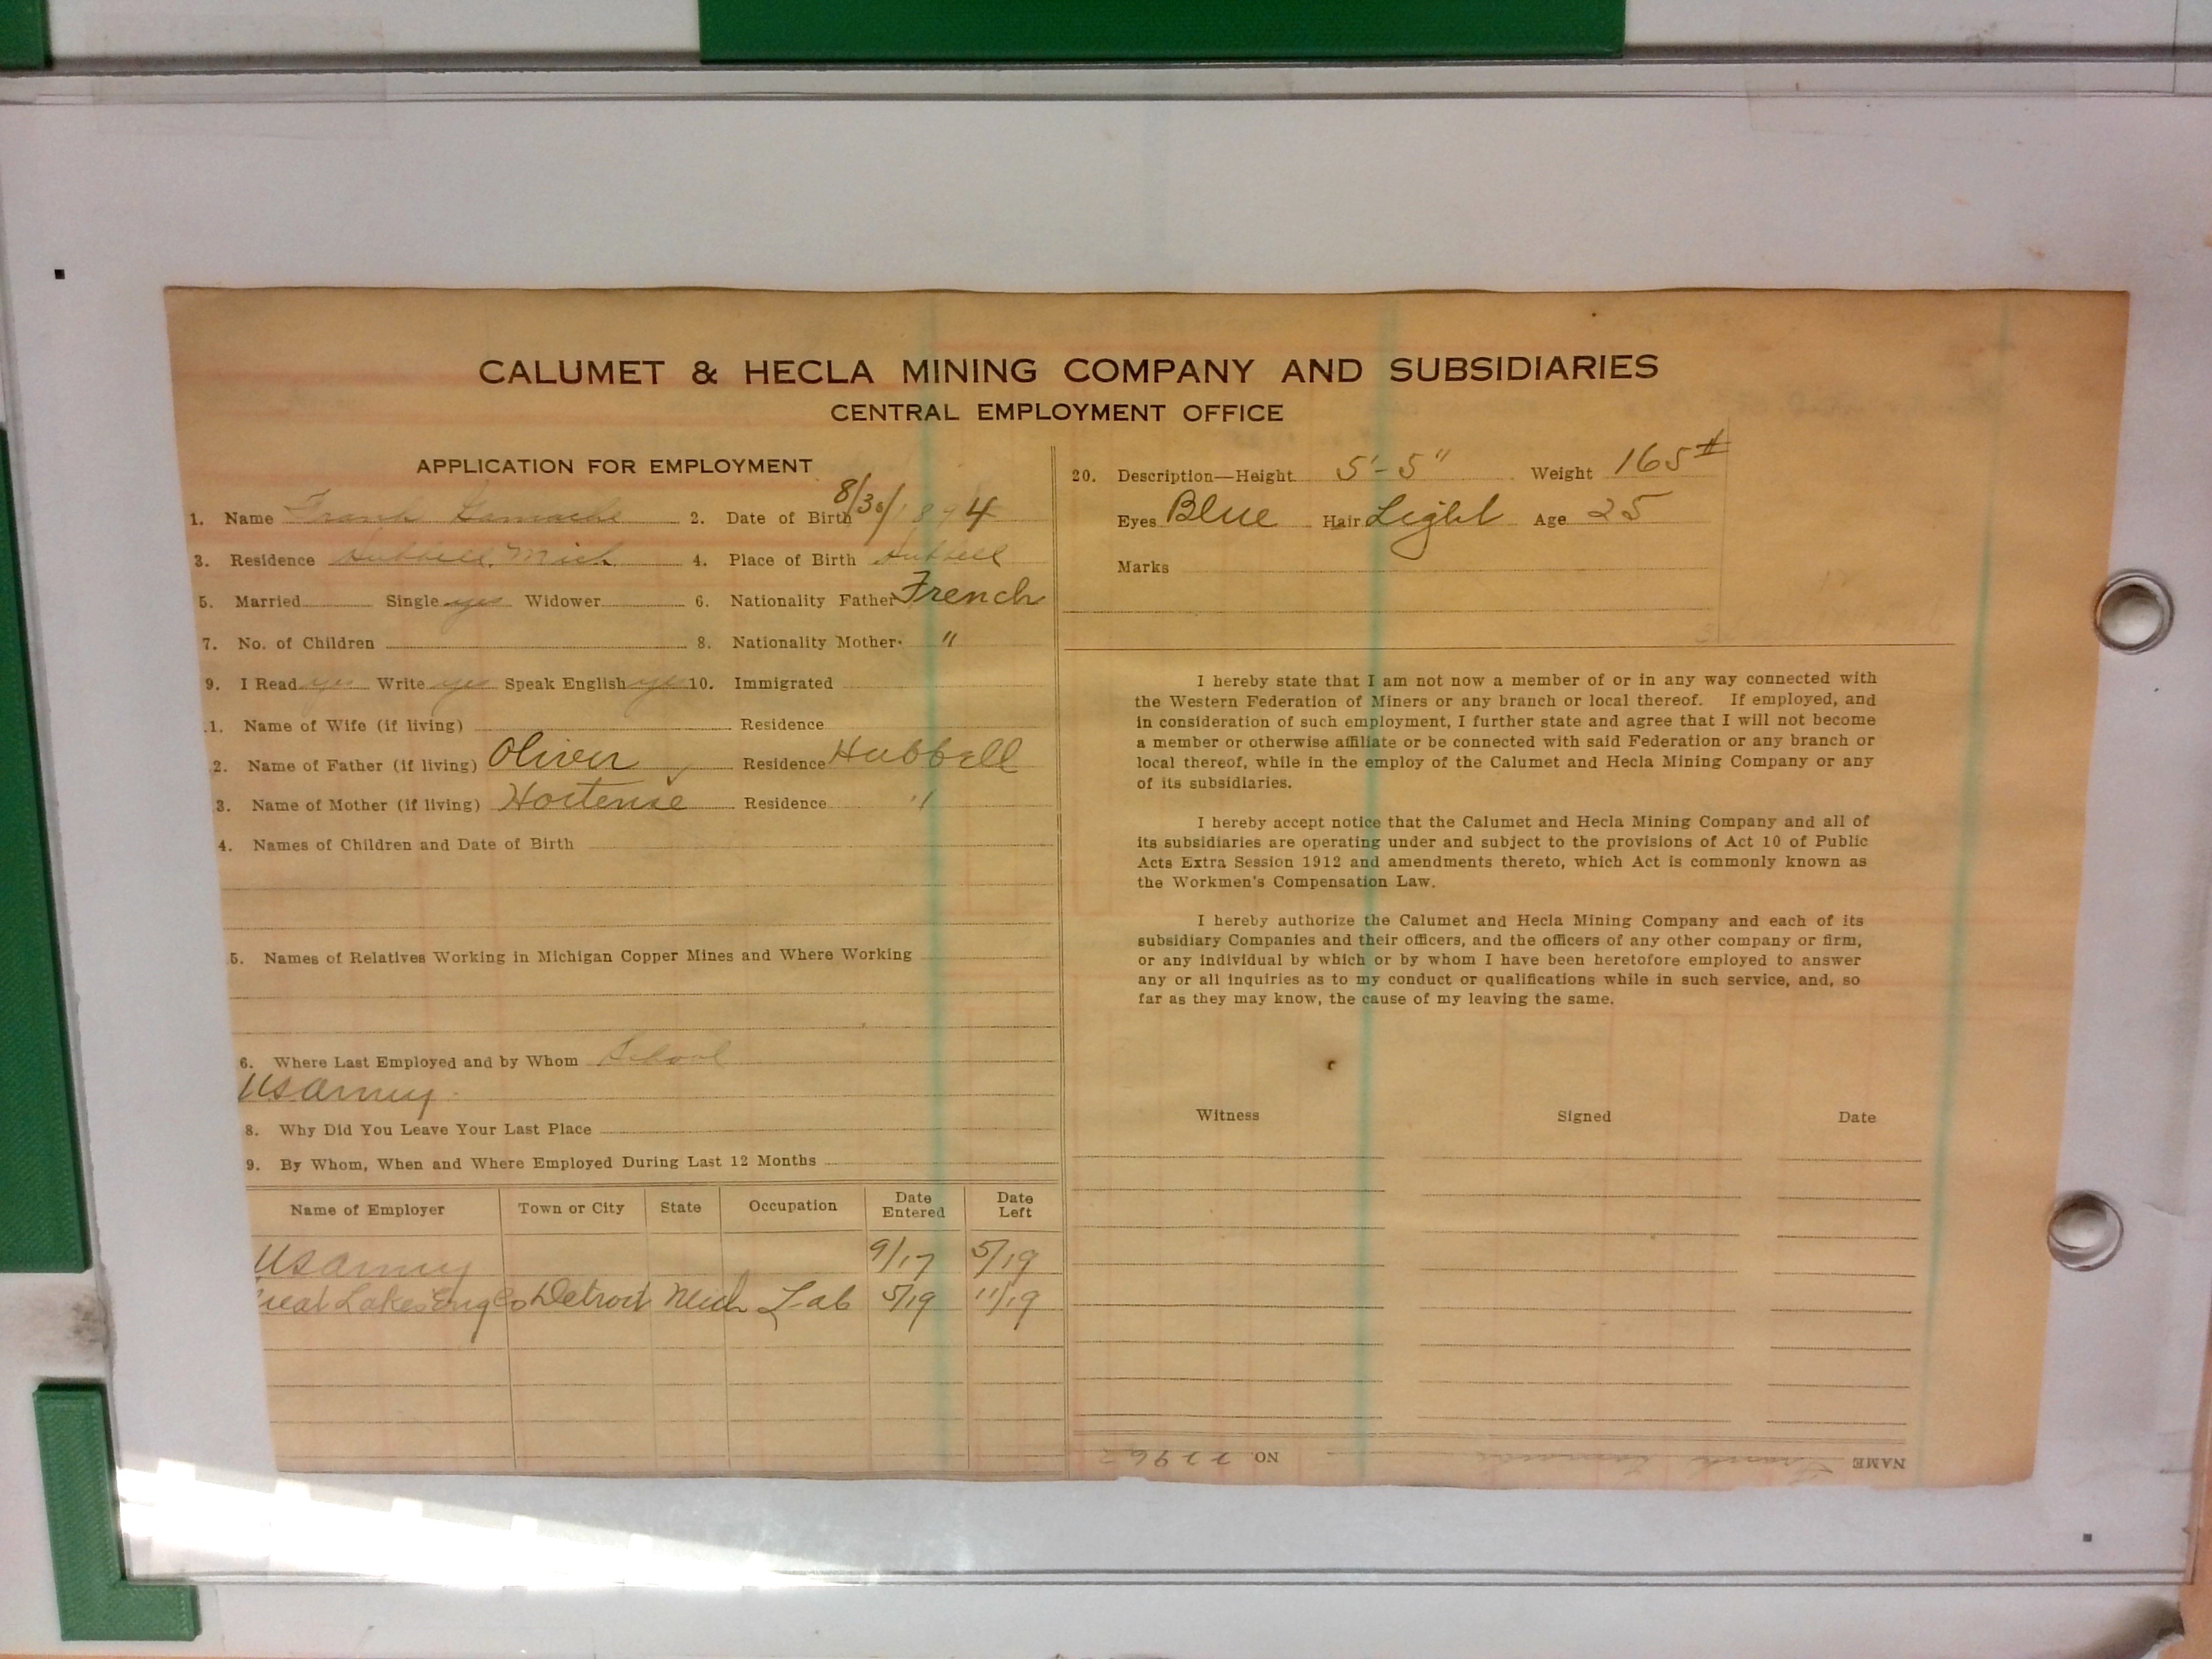 CALUMET & HECLA MINING COMPANY AND SUBSIDIARIES
CENTRAL EMPLOYMENT OFFICE
APPLICATION FOR EMPLOYMENT
1. Name Frank Gamache 2. Date of Birth 8/30/1894
3. Residence Hubbell, Mich 4. Place of Birth Hubbell
5. Married Single yes Widower 6. Nationality Father French
7. No. of Children 8. Nationality Mother "
9. I Read yes Write yes Speak English yes 10. Immigrated
.1. Name of Wife (if living) Residence
2. Name of Father (if living) Oliver Residence Hubbell
3. Name of Mother (if living) Hortense Residence "
4. Names of Children and Date of Birth
5. Names of Relatives Working in Michigan Copper Mines and Where Working
6. Where Last Employed and by Whom School
US Army
8. Why Did You Leave Your Last Place
9. By Whom, When and Where Employed During Last 12 Months
Name of Employer Town or City State Occupation Date Entered Date Left
US Army 9/17 5/19
reat Lakes Eng Co Detroit Mich Lab 5/19 11/19
20. Description—Height 5'-5" Weight 165#
Eyes Blue Hair Light Age 25
Marks
I hereby state that I am not now a member of or in any way connected with
the Western Federation of Miners or any branch or local thereof. If employed, and
in consideration of such employment, I further state and agree that I will not become
a member or otherwise affiliate or be connected with said Federation or any branch or
local thereof, while in the employ of the Calumet and Hecla Mining Company or any
of its subsidiaries.
I hereby accept notice that the Calumet and Hecla Mining Company and all of
its subsidiaries are operating under and subject to the provisions of Act 10 of Public
Acts Extra Session 1912 and amendments thereto, which Act is commonly known as
the Workmen's Compensation Law.
I hereby authorize the Calumet and Hecla Mining Company and each of its
subsidiary Companies and their officers, and the officers of any other company or firm,
or any individual by which or by whom I have been heretofore employed to answer
any or all inquiries as to my conduct or qualifications while in such service, and, so
far as they may know, the cause of my leaving the same.
Witness Signed Date
NAME Frank Gamache NO.